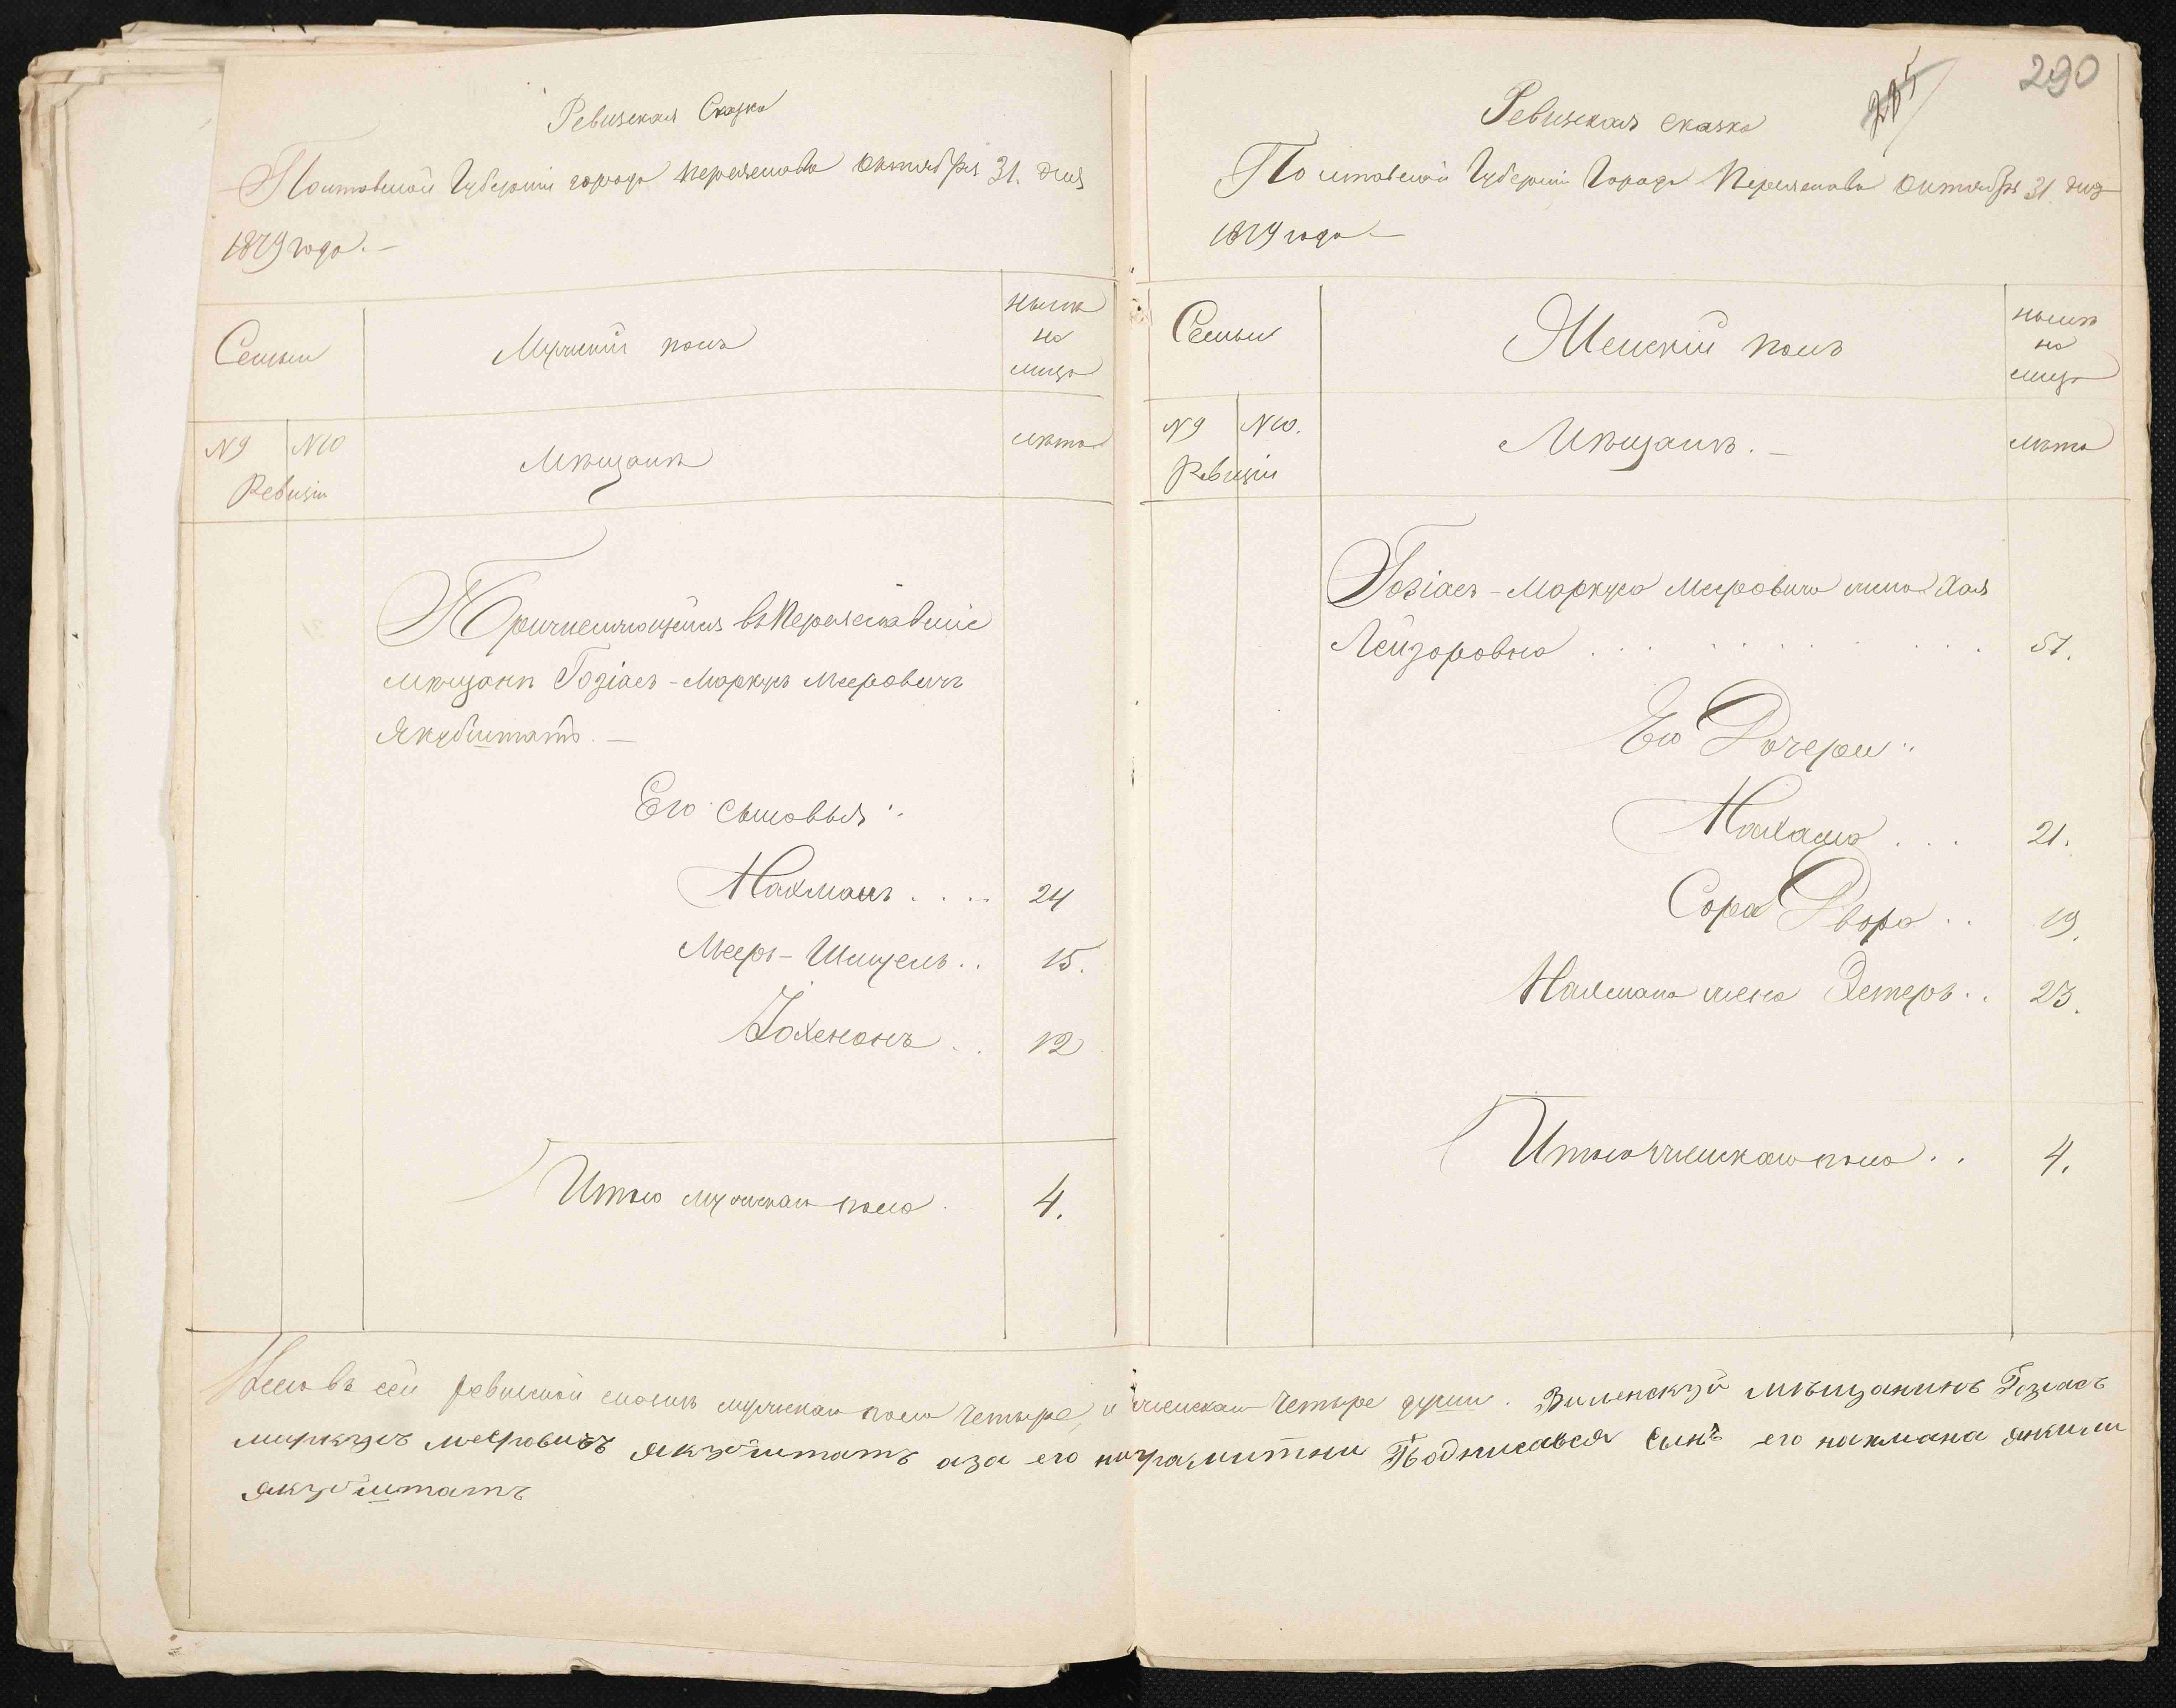 Ревизская Сказка
Полтавской Губерніи города Переяслава Октября 31. дня
1879 года. —
Семьи
Мужскій полъ
Нынѣ
на
лицо
№ 9
№ 10
Ревизіи
Мѣщанѣ
лѣта
Причисляющейся въ Переяславскіе
мѣщане Гозіасъ-Маркусъ Мееровичъ
Якубштатъ. —
Его Сыновья:
Нахманъ . . . . 24
Мееръ-Шинцель . . 15.
Іохенонъ . . 12
Итого мужскаго пола . 4.
290
285
Ревизская сказка
Полтавской Губерніи Города Переяслава Октября 31 дня
1879 года —
Семьи
Женскій полъ
нынѣ
на
лицо
№ 9
№ 10.
Ревизіи
Мѣщанъ. —
лѣта
Гозіасъ-Маркуса Мееровича жена Хая
Лейзоровна . . . . . . . . . 51.
Его Дочери:
Малама . . . 21.
Сора Двора . . 19.
Нахмана жена Эстеръ . . 23.
Итого женскаго пола . . 4.
Всего въ сей ревизской сказкѣ мужскаго пола четыре, и женскаго четыре души. Виленскуй мѣщанинъ Гозіасъ
маркусъ мееровичъ якубштатъ аза его награмитни Подписався Сынъ его нахмана янкили
якубштатъ